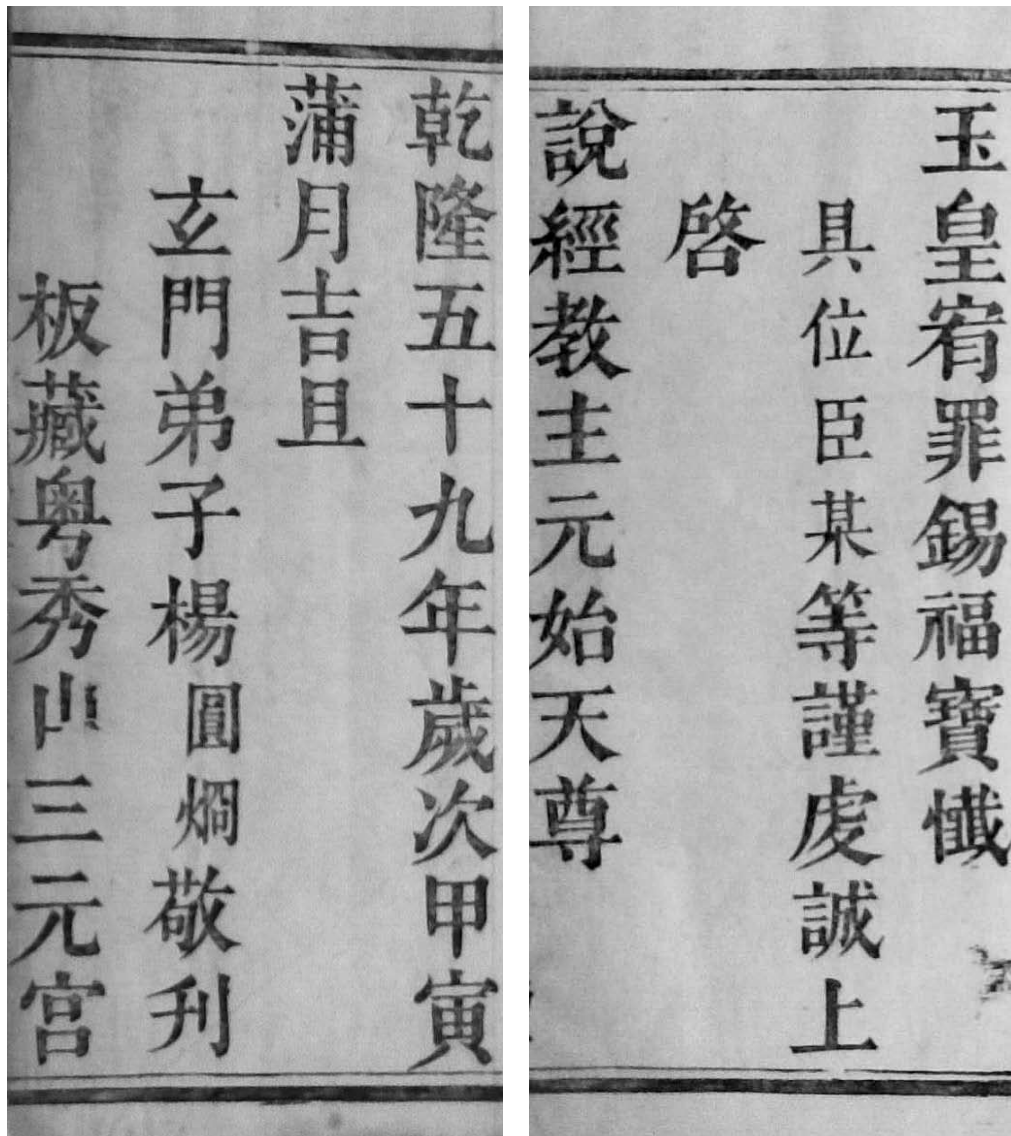 玉皇宥罪錫福寶懺
具位臣某等謹虔誠上
啓
說經教主元始天尊
乾隆五十九年歲次甲寅
蒲月吉旦
玄門弟子楊圓烱敬刊
板藏粤秀山三元宮